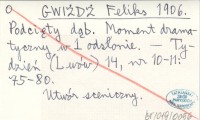 GWIŻDŻ Feliks 1906.
Podcięty dąb. Moment drama-
tyczny w 1 odsłonie. — Ty-
dzień (Lwów) 14, nr 10-11:
75-80.
Utwór sceniczny.